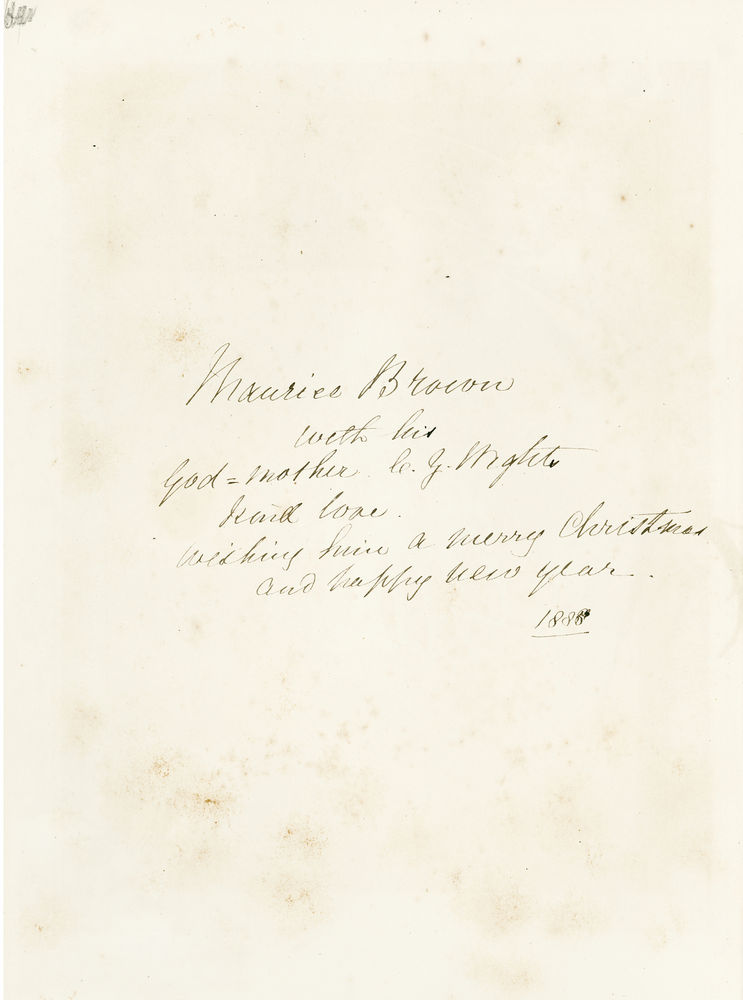 Maurice Brown
with his
God=mother C. Y. Wights
kind love.
wishing him a merry Christmas
and happy new year.
1888